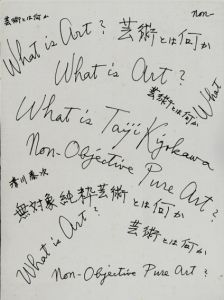 芸術とは何か
non-
What is Art?
芸術とは何か
What is Art?
芸術とは何か
What
What is Taiji Kiyokawa
Non-Objective Pure Art?
清川泰次
無対象純粋芸術とは何か
What is Art?
芸術とは何か
Non-Objective Pure Art?